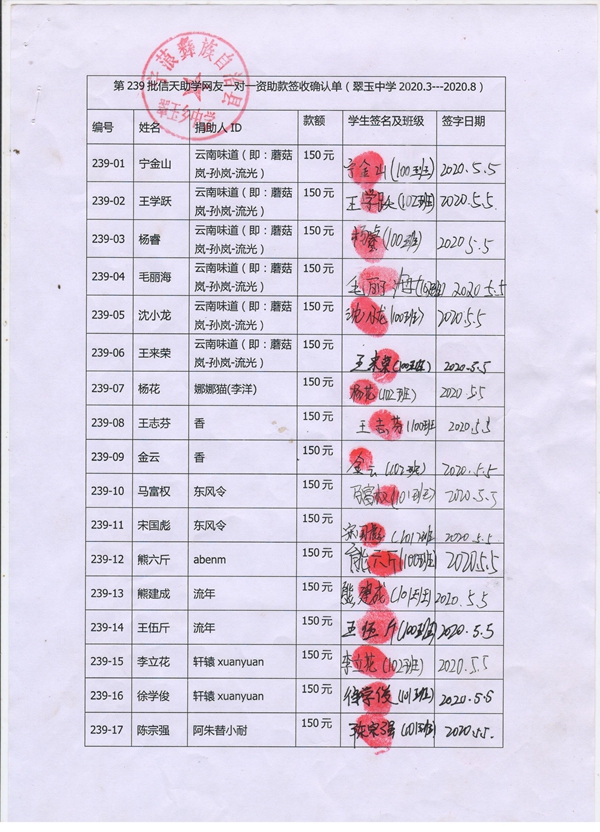 宁蒗彝族自治县
翠玉乡中学
第 239 批信天助学网友一对一资助款签收确认单（翠玉中学 2020.3---2020.8）
编号 姓名 捐助人 ID 款额 学生签名及班级 签字日期
239-01 宁金山 云南味道（即：蘑菇岚-孙岚-流光） 150 元 宁金山(100班) 2020.5.5
239-02 王学跃 云南味道（即：蘑菇岚-孙岚-流光） 150 元 王学跃(102班) 2020.5.5
239-03 杨睿 云南味道（即：蘑菇岚-孙岚-流光） 150 元 杨睿(100班) 2020.5.5
239-04 毛丽海 云南味道（即：蘑菇岚-孙岚-流光） 150 元 毛丽海 2020.5.5
239-05 沈小龙 云南味道（即：蘑菇岚-孙岚-流光） 150 元 沈小龙(100班) 2020.5.5
239-06 王来荣 云南味道（即：蘑菇岚-孙岚-流光） 150 元 王来荣(100班) 2020.5.5
239-07 杨花 娜娜猫(李洋) 150 元 杨花(102班) 2020.5.5
239-08 王志芬 香 150 元 王志芬(100班 2020.5.5
239-09 金云 香 150 元 金云(102班) 2020.5.5
239-10 马富权 东风令 150 元 马富权(101班) 2020.5.5
239-11 宋国彪 东风令 150 元 宋国彪(101班 2020.5.5
239-12 熊六斤 abenm 150 元 熊六斤(100班) 2020.5.5
239-13 熊建成 流年 150 元 熊建成(101班) 2020.5.5
239-14 王伍斤 流年 150 元 王伍斤(100班) 2020.5.5
239-15 李立花 轩辕 xuanyuan 150 元 李立花(102班) 2020.5.5
239-16 徐学俊 轩辕 xuanyuan 150 元 徐学俊(101班) 2020.5.5
239-17 陈宗强 阿朱替小耐 150 元 陈宗强(101班) 2020.5.5.